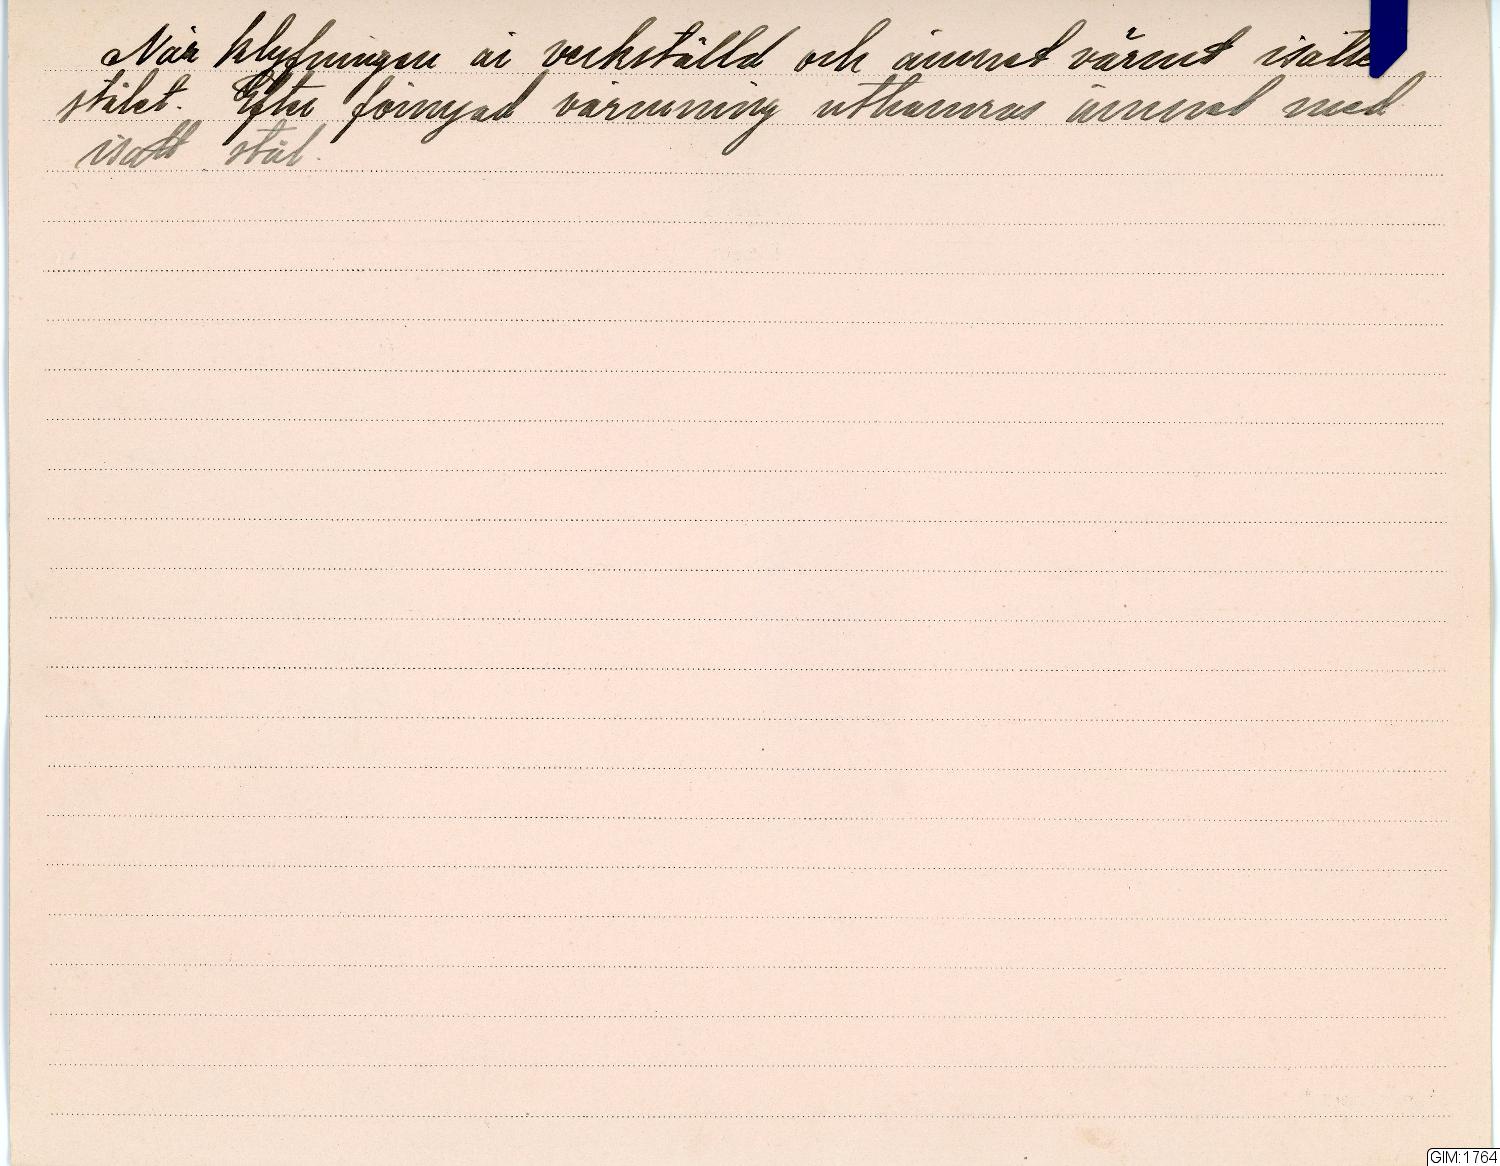 När klyfningen är verkställd och ämnet värmt isättes
stålet. Efter förnyad värmning uthamras ämnet med
isatt stål.
GIM:1764